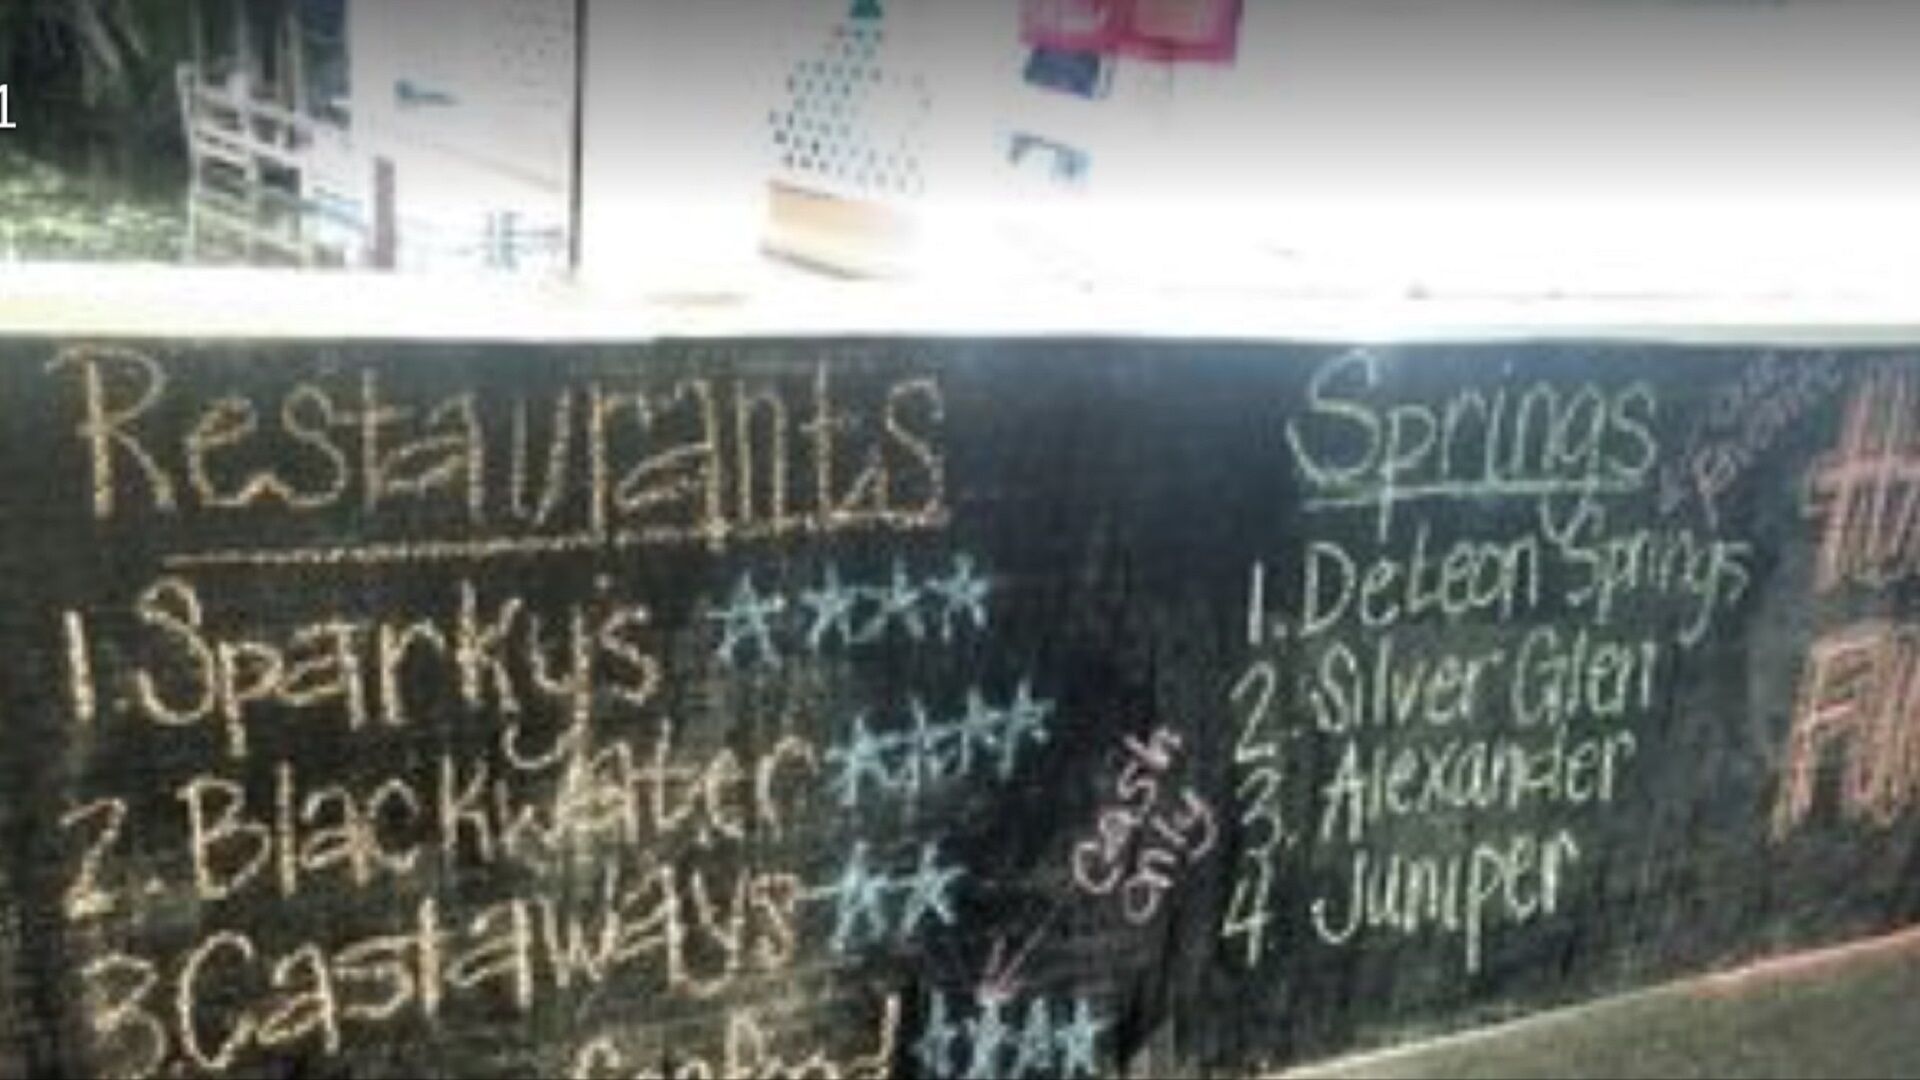 1
Restaurants
1. Sparky's ★★★★
2. Blackwater ★★★★
3. Castaways ★★
Seafood ★★★★
Cash
only
Springs
1. DeLeon Springs
2. Silver Glen
3. Alexander
4. Juniper